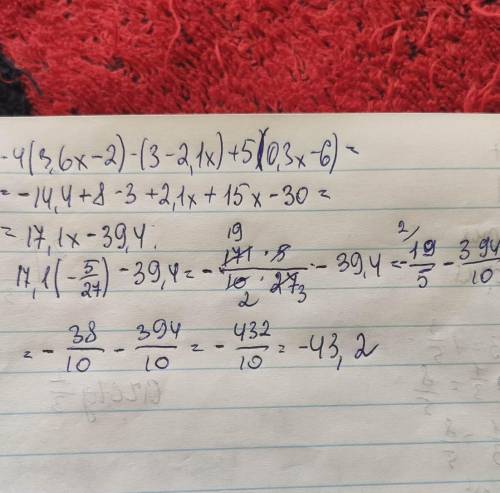 -4(3,6x-2)-(3-2,1x)+5(0,3x-6)=
=-14,4+8-3+2,1x+15x-30=
=17,1x-39,4.
17,1(-5/27)-39,4=-(171·5)/(10·27)-39,4=-19/5-394/10
19
2 3
2/
=-38/10-394/10=-432/10=-43,2